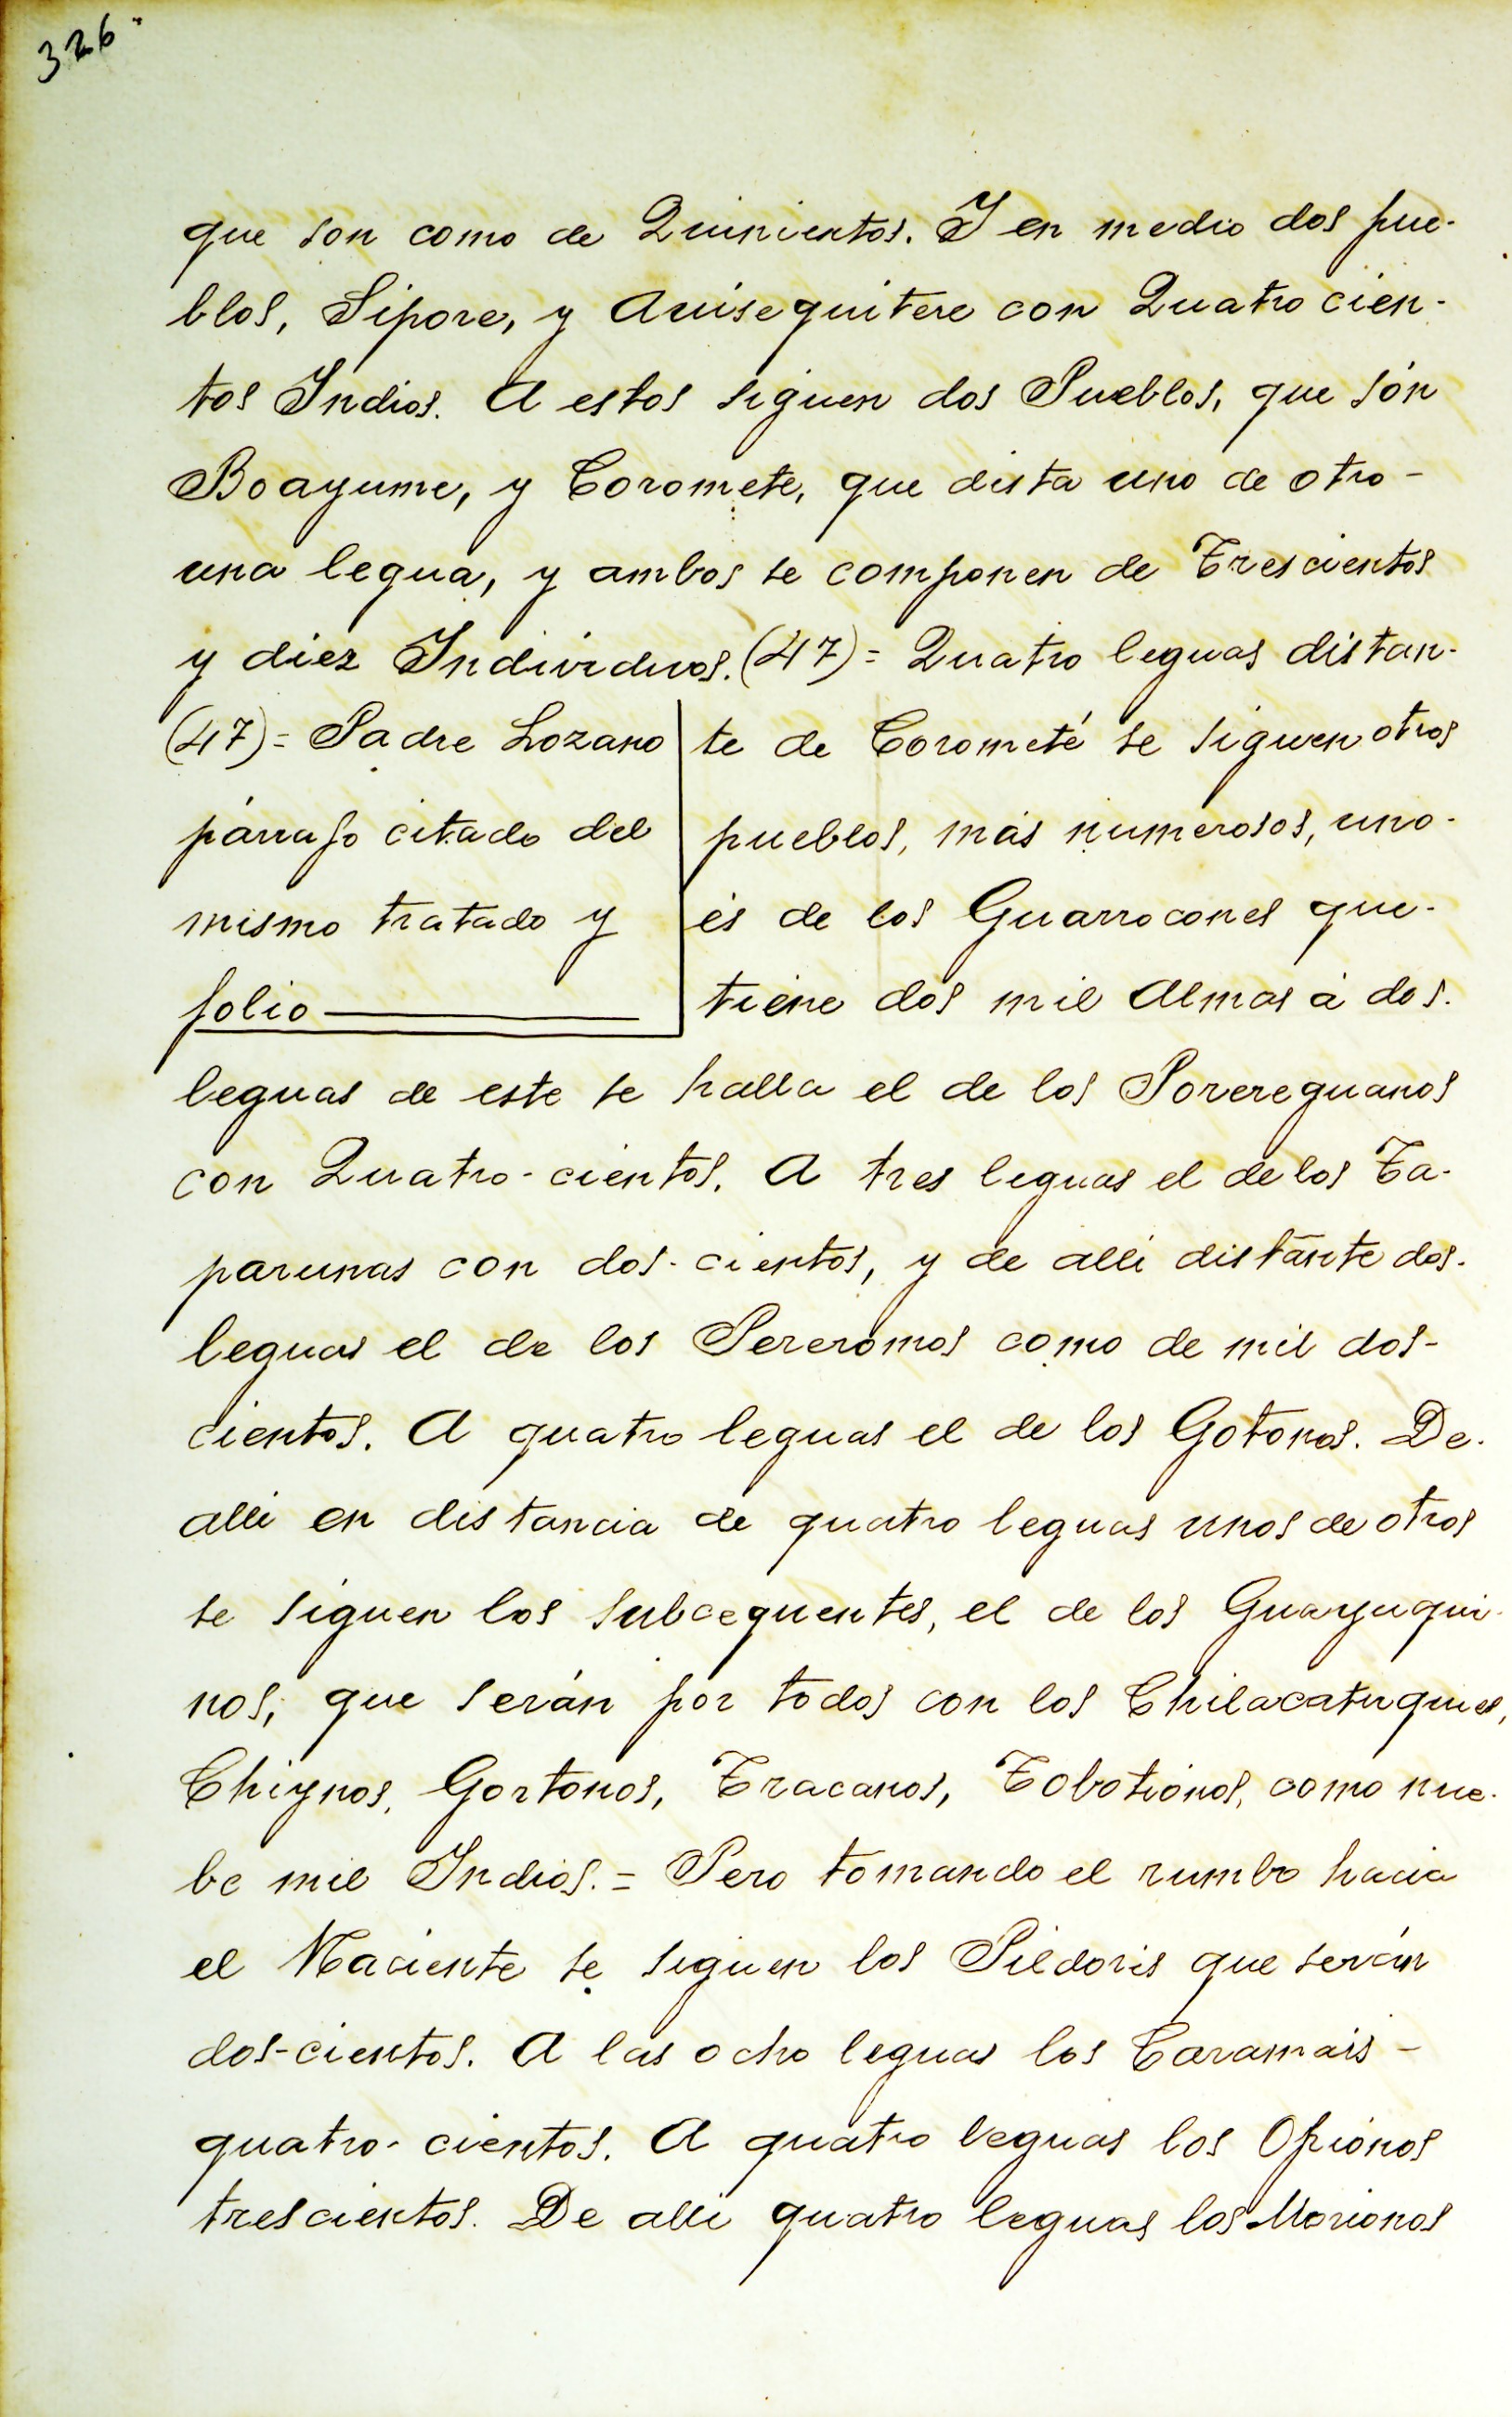 326
que son como de Quinientos. Y en medio dos pue-
blos, Sipore, y Auisequitere con Quatro cien-
tos Indios. A estos siguen dos Pueblos, que són
Boayume, y Coromete, que dista uno de otro-
una legua, y ambos se componen de Trescientos
y diez Individuos. (47)= Quatro leguas distan-
(47)= Padre Lozano
párrafo citado del
mismo tratado y
folio
te de Corometé se siguen otros
pueblos, más numerosos, uno-
és de los Guarrocones que-
tiene dos mil Almas á dos.
leguas de este se halla el de los Porereguanos
con Quatro-cientos. A tres leguas el de los Ta-
parunas con dos-cientos, y de alli distante dos.
leguas el de los Pereromos como de mil dos-
cientos. A quatro leguas el de los Gotonos. De.
alli en distancia de quatro leguas unos de otros
se siguen los subcequentes, el de los Guayuqui-
nos, que serán por todos con los Chilacatuquies,
Chiynos, Gortonos, Tracanos, Tobotiónos, como nue-
be mil Indios.= Pero tomando el rumbo hacia
el Naciente se siguen los Pildoris que serán
dos-cientos. A las ocho leguas los Caramais-
quatro-cientos. A quatro leguas los Opionos
trescientos. De alli quatro leguas los Morionos